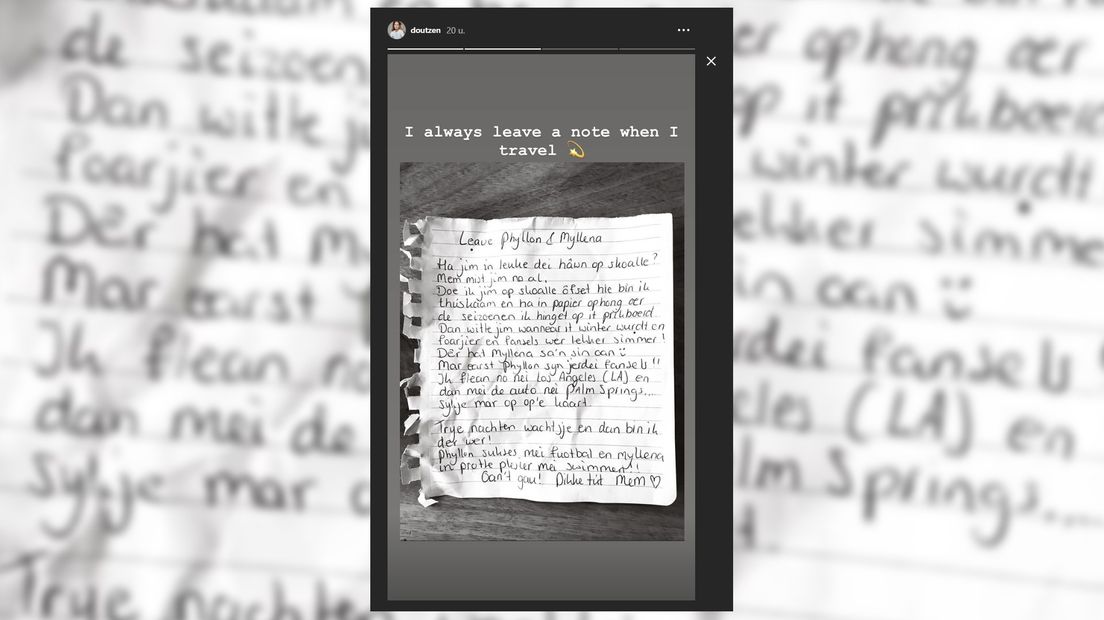 doutzen 20 u.
I always leave a note when I
travel 💫
Leave Phyllon & Myllena
Ha jim in leuke dei hâwn op skoalle?
Mem mist jim no al.
Doe ik jim op skoalle ôfset hie bin ik
thúskaam en ha in papier ophong oer
de seizoenen ik hinget op it prikboerd.
Dan witte jim wannear it winter wurdt en
foarjier en fansels wer lekker simmer!
Der hat Myllena sa'n sin oan
Mar earst Phyllon syn jerdei fansels!!
Ik flean no nei Los Angeles (LA) en
dan mei de auto nei Palm Springs....
Sykje mar op op'e kaart
Trije nachten wachtsje en dan bin ik
der wer!
Phyllon sukses mei fuotbal en Myllena
in protte plezier mei swimmen!!
Oan't gau! Dikke tút Mem ♡